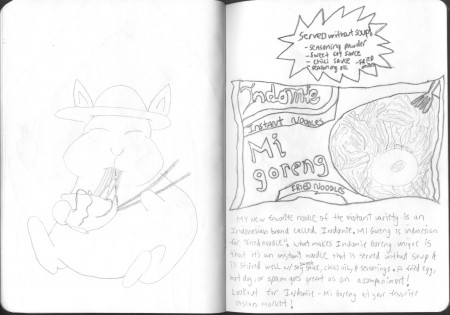 Served without soup!
- seasoning powder
- sweet soy sauce
- chili sauce - fried onion
- seasoning oil
Indomie
INSTANT NOODLES
Mi
goreng
FRIED NOODLES
My new favorite noodle of the instant variety is an
Indonesian brand called Indomie. Mi Goreng is indonesian
for "fried noodle". What makes Indomie Goreng unique is
that it's an instant noodle that is served without soup &
is stirred well w/ sweet soy sauce, chili, oil, & seasonings. A fried egg,
hot dog, or spam goes great as an accompaniment!
Look out for Indomie - Mi Goreng at your favorite
asian market!